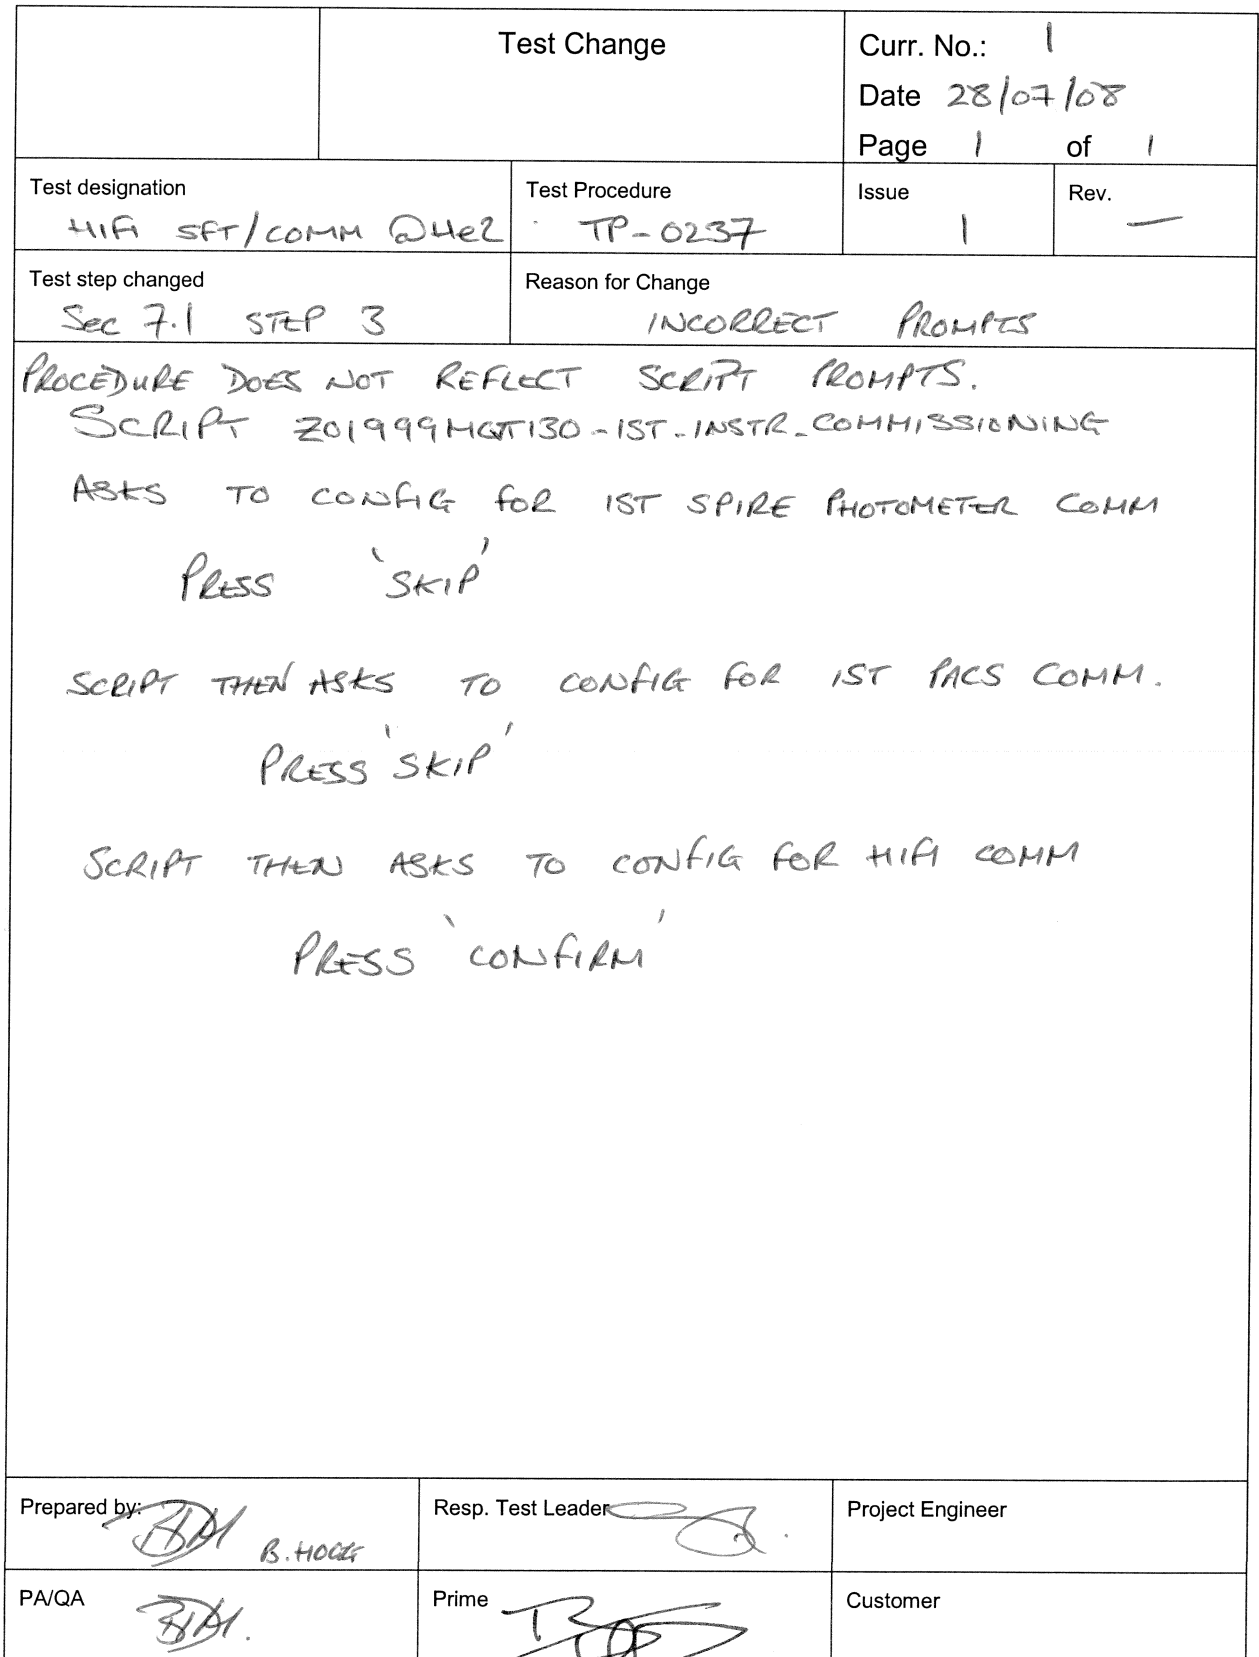 Test Change
Curr. No.: 1
Date 28/07/08
Page 1 of 1
Test designation
HIFI SFT/COMM @He2
Test Procedure
TP-0237
Issue
1
Rev.
—
Test step changed
Sec 7.1 STEP 3
Reason for Change
INCORRECT PROMPTS
PROCEDURE DOES NOT REFLECT SCRIPT PROMPTS.
SCRIPT Z01999MGT130-IST-INSTR_COMMISSIONING
ASKS TO CONFIG FOR IST SPIRE PHOTOMETER COMM
PRESS 'SKIP'
SCRIPT THEN ASKS TO CONFIG FOR IST PACS COMM.
PRESS 'SKIP'
SCRIPT THEN ASKS TO CONFIG FOR HIFI COMM
PRESS 'CONFIRM'
Prepared by:
B.
Resp. Test Leader
Project Engineer
PA/QA
Prime
Customer